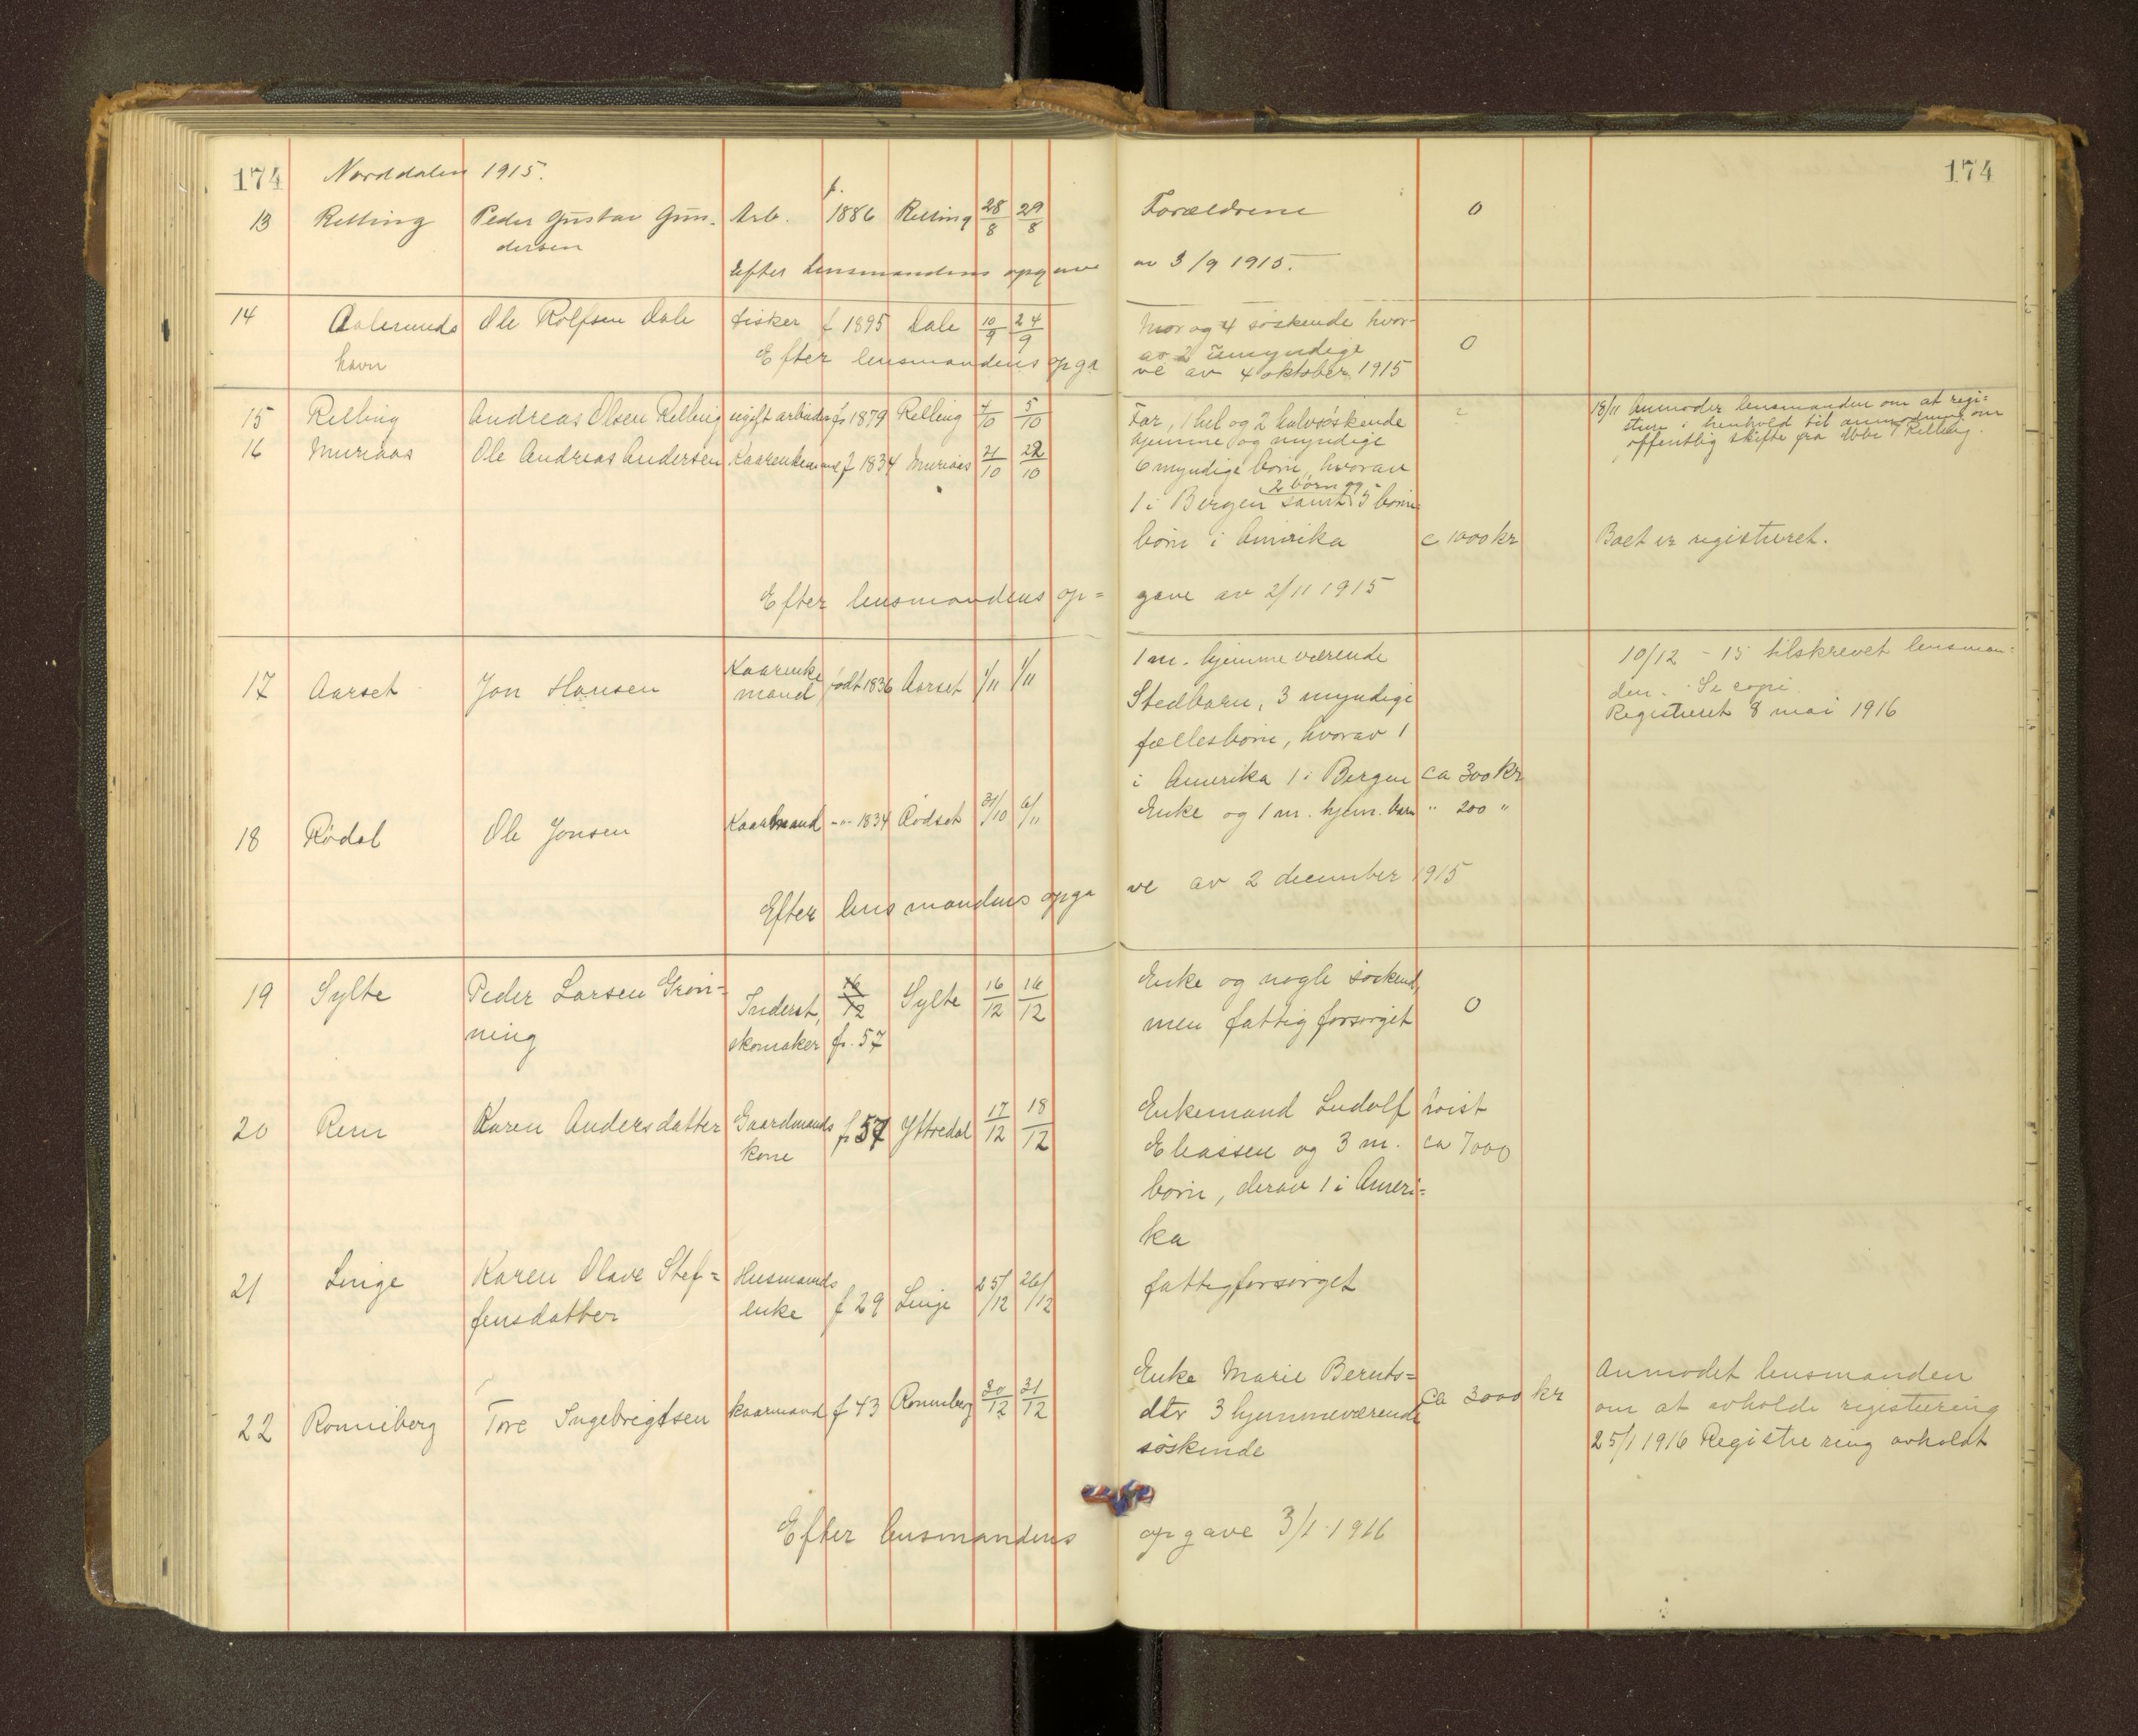 174 Norddalen 1915. 174
13 Relling Peder Gustav Gun- Arb. f. 1886 Relling 28/8 29/8 Forældrene 0
dersen
Efter lensmandens opgave av 3/9 1915.
14 Aalesunds Ole Rolfsen Dale fisker f 1895 Dale 10/9 24/9 Mor og 4 søskende hvor-
havn av 2 umyndige 0
Efter lensmandens opga ve av 4 oktober 1915
15 Relling Andreas Olsen Relling ugift arbeider f 1879 Relling 4/10 5/10 Far, 1 hel og 2 halvsøskende ? 18/11 Anmoder lensmanden om at regi=
hjemme og myndige stere i henhold til anmodning om
offentlig skifte fra Relling.
16 Muriaas Ole Andreas Andersen Kaarenkemand f 1834 Muriaas 21/10 22/10 6 myndige børn, hvorav
1 i Bergen samt 2 børn og 3 børne=
børn i Amerika c 1000 kr Boet er registreret.
Efter lensmandens op= gave av 2/11 1915
17 Aarset Jon Hansen Kaarenke 1 m. hjemmeværende 10/12 - 15 tilskrevet lensman=
mand født 1836 Aarset 1/11 1/11 Stedbarn, 3 myndige den. Se copi.
fællesbørn, hvorav 1 Registreret 8 mai 1916
i Amerika 1 i Bergen ca 300 kr
18 Rødal Ole Jonsen Kaarmand -"- 1834 Rødset 31/10 6/11 Enke og 1 m. hjem. barn " 200 "
Efter lensmandens opga ve av 2 december 1915
19 Sylte Peder Larsen Grøn- Inderst, 16/12 Sylte 16/12 16/12 Enke og nogle søskend,
ning skomaker f. 57 men fattigforsørget 0
20 Rem Karen Andersdatter Gaardmands f 57 Yttredal 17/12 18/12 Enkemand Ludolf hvist
kone Eliassen og 3 m. ca 7000
børn, derav 1 i Ameri=
ka
21 Linge Karen Olave Stef= Husmands f 29 Linge 25/12 26/12 fattigforsørget
fensdatter enke
22 Ronneberg Tore Ingebrigtsen kaarmand f 43 Ronneberg 30/12 31/12 Enke Marie Bernts= ca 3000 kr Anmodet lensmanden
dtr 3 hjemmeværende om at avholde registrering
søskende 25/1 1916 Registrering avholdt
Efter lensmandens opgave 3/1 1916